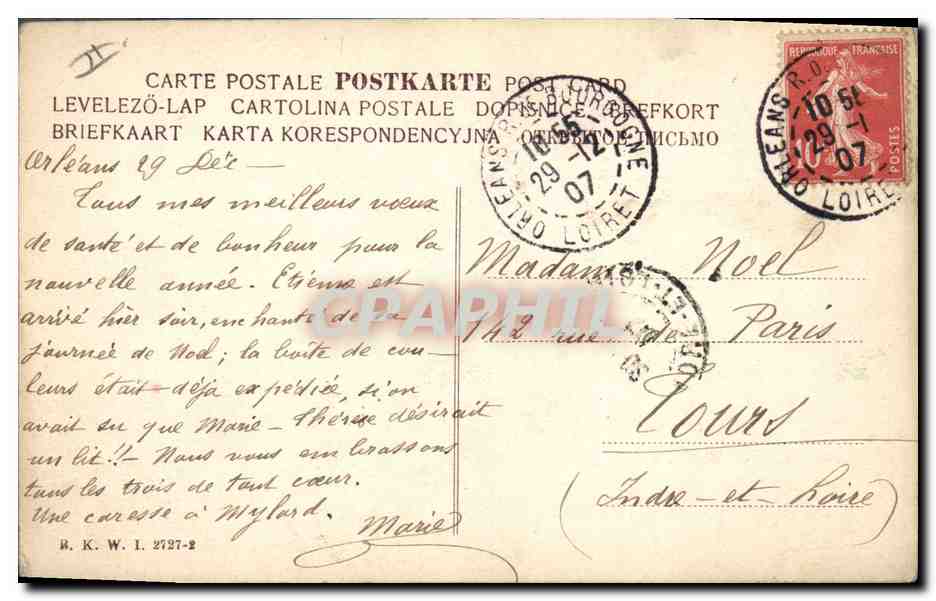 CARTE POSTALE POSTKARTE POST CARD
LEVELEZŐ-LAP CARTOLINA POSTALE DOPISNICE BREFKORT
BRIEFKAART KARTA KORESPONDENCYJNA ОТКРЫТОЕ ПИСЬМО
REPUBLIQUE FRANÇAISE
10
POSTES
ORLEANS R.D.
10 55
29 -1
07
LOIRET
ORLEANS R. BOURGOGNE
10 55
29 -12
07
LOIRET
Orléans 29 Déc -
Tous mes meilleurs vœux
de santé et de bonheur pour la
nouvelle année. Etienne est
arrivé hier soir, enchanté de sa
journée de Noël ; la boîte de cou-
leurs était déjà expédiée, si on
avait su que Marie-Thérèse désirait
un lit !! - Nous vous embrassons
tous les trois de tout cœur.
Une caresse à Mylord.
Marie
Madame Noel
142 rue de Paris
Tours
(Indre-et-Loire)
CPAPHIL
R. K. W. I. 2727-2